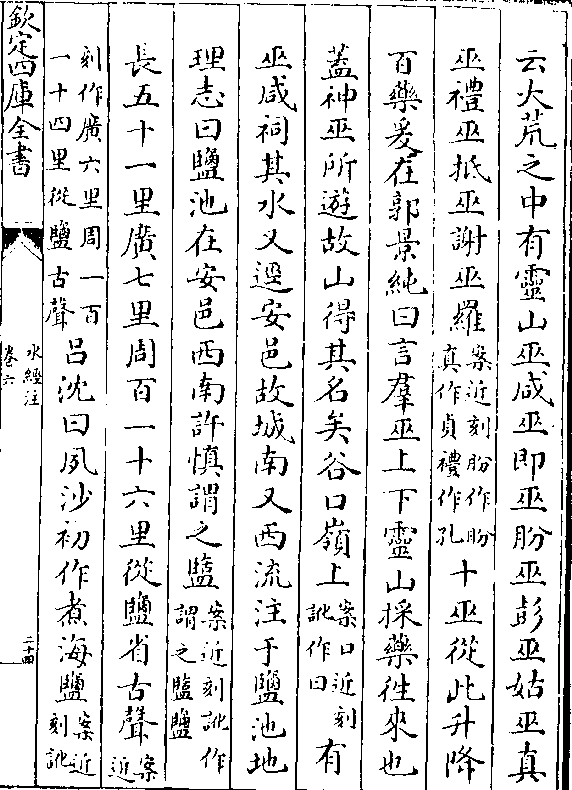 云大荒之中有靈山巫咸巫即巫肦巫彭巫姑巫真
巫禮巫抵巫謝巫羅案近刻肦作盼真作貞禮作孔十巫從此升降
百藥爰在郭景純曰言羣巫上下靈山採藥徃來也
蓋神巫所遊故山得其名矣谷口嶺上案口近刻訛作曰有
巫咸祠其水又逕安邑故城南又西流注于鹽池地
理志曰鹽池在安邑西南許慎謂之盬案近刻訛作謂之盬鹽
長五十一里廣七里周百一十六里從鹽省古聲案近
刻作廣六里周一百一十四里從鹽古聲呂沈曰夙沙初作煮海鹽案近刻訛
欽定四庫全書
水經注
卷六
二十四